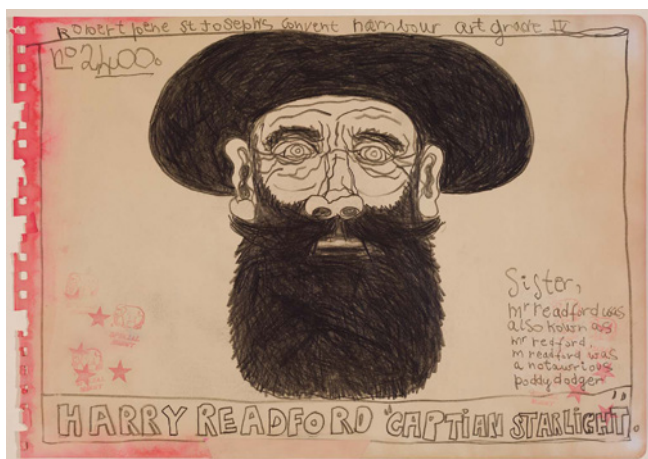 Robert pene st Josephs convent hambour art grade IV
no 2400.
Sister,
mr readford was
also kown as
mr redford.
m readford was
a notawrious
poddy dodger
HARRY READFORD "CAPTIAN STARLIGHT".